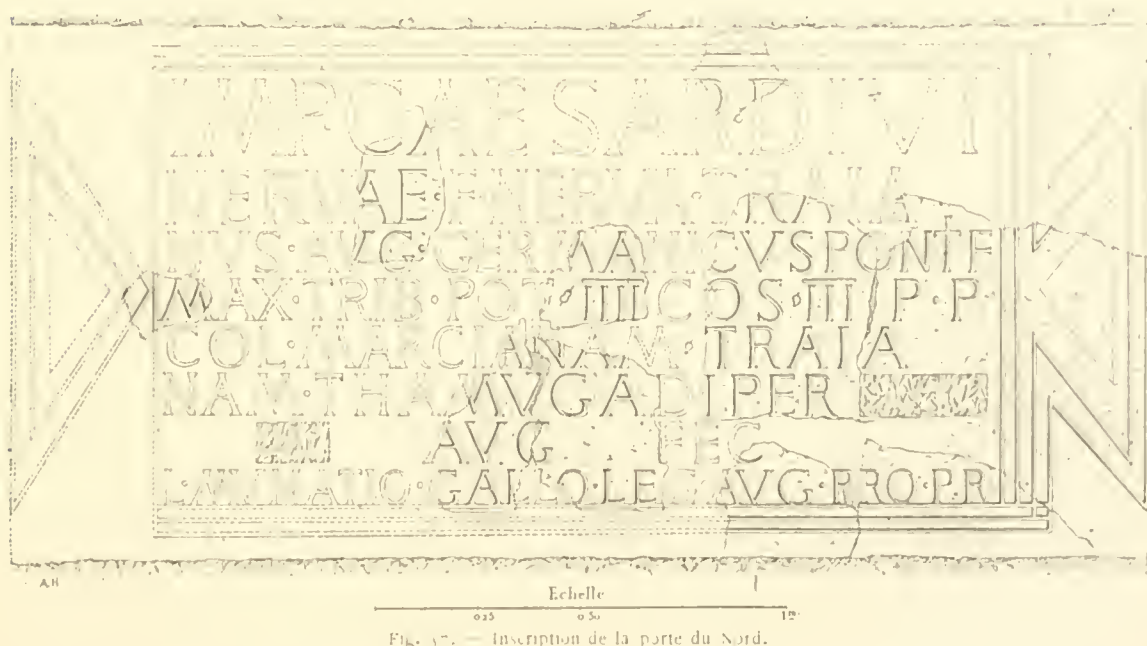 IMP CAESAR DIVI
NERVAE · F · NERVA · TRAIA
NVS · AVG · GERMANICVS PONTIF
MAX · TRIB · POT · IIII COS III P · P
COL · MARCIANAM · TRAIA
NAM · THAMVGADI PER
AVG FEC
L · MVNATIO · GALLO · LEG AVG · PRO · PR
A.H
Echelle
0.25 0.50 1m
Fig. — Inscription de la porte du Nord.